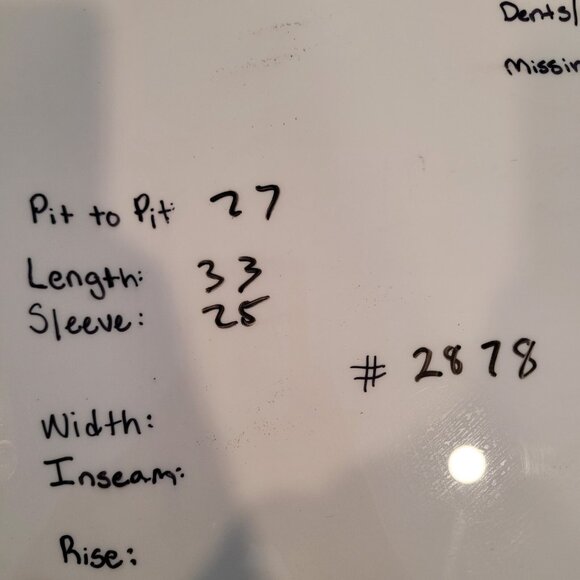 Dents/
Missin
Pit to Pit: 27
Length: 33
Sleeve: 25
# 2878
Width:
Inseam:
Rise: